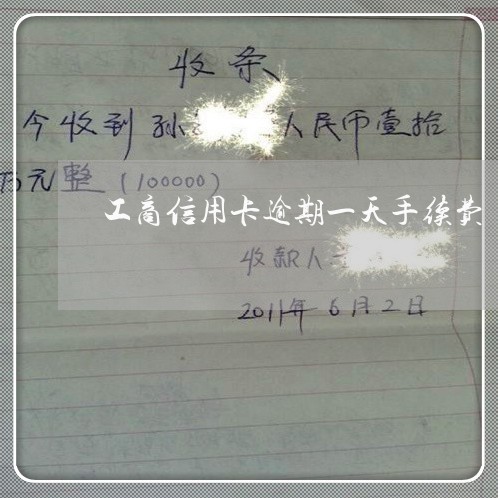 收条
今收到孙 人民币壹拾
万元整（100000）
工商信用卡逾期一天手续费
收款人
2011年6月2日